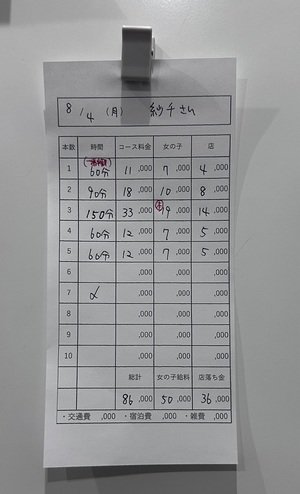 8/4 (月) 紗千さん
本数 時間 コース料金 女の子 店
1 60分 11,000 7,000 4,000
2 90分 18,000 10,000 8,000
3 150分 33,000 19,000 14,000
4 60分 12,000 7,000 5,000
5 60分 12,000 7,000 5,000
6 ,000 ,000 ,000
7 ,000 ,000 ,000
8 ,000 ,000 ,000
9 ,000 ,000 ,000
10 ,000 ,000 ,000
総計 女の子給料 店落ち金
86,000 50,000 36,000
・交通費 ,000 ・宿泊費 ,000 ・雑費 ,000